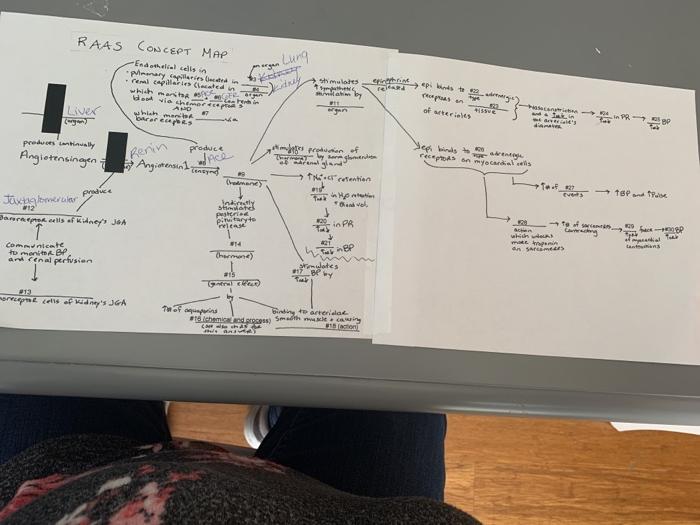 RAAS CONCEPT MAP
Endothelial cells in
an organ Lung
• pulmonary capillaries (located in #3
• renal capillaries (located in #4 Kidney
organ
which monitor #5
blood via chemoreceptors
AND
which monitor #7 via
baroreceptors
Liver
(organ)
produces continually
Angiotensinogen
Renin
Angiotensin 1
produce
ACE
#8
(enzyme)
produce
Juxtaglomerular
#12
Baroreceptor cells of Kidney's JGA
communicate
to monitor BP
and renal perfusion
#13
cells of Kidney's JGA
#9
(hormone)
Indirectly
stimulates
posterior
pituitary to
release
#14
(hormone)
#15
(general effect)
by
↑# of aquaporins
#16 (chemical and process)
(see also ch25 for
this answer)
stimulates
↑ sympathetic
stimulation by
#11
organ
stimulates production of
#10
(hormone) by zona glomerulosa
of adrenal gland
↑Na+Cl- retention
#19
↑or↓ in H₂O retention
+ Blood vol.
#20
↑or↓ in PR
#21
↑or↓ in BP
stimulates
#17 BP by
↑or↓
binding to arteriolar
smooth muscle + causing
#18 (action)
epinephrine
released
epi binds to #22 adrenergic
type
receptors on #23
tissue
of arterioles
vasoconstriction
and a ↑or↓ in
the arteriole's
diameter
#24 in PR
↑or↓
#25 BP
↑or↓
epi binds to #26 adrenergic
type
receptors on myocardial cells
↑# of #27
events
↑BP and ↑Pulse
#28
action
which unlocks
more troponin
on sarcomeres
↑# of sarcomeres
contracting
#29 force
↑or↓
of myocardial
contractions
#30 BP
↑or↓